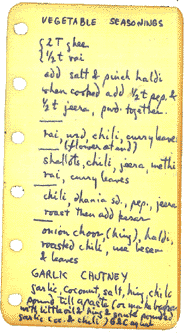 VEGETABLE SEASONINGS
{2 T ghee
{½ t rai
add salt & pinch haldi
when cooked add ½ t pep. &
½ t jeera, pwd. together.
rai, urd, chili, curry leaves
shallots, chili, jeera, methi
rai, curry leaves
chili, dhania sd., pep., jeera
roast then add
onion choor, (hing), haldi,
roasted chili, use besan
& leaves
GARLIC CHUTNEY
garlic, coconut, salt, hing, chile
pound till a paste (or
with little oil & hing & sauté pounded
garlic, coc. & chili)